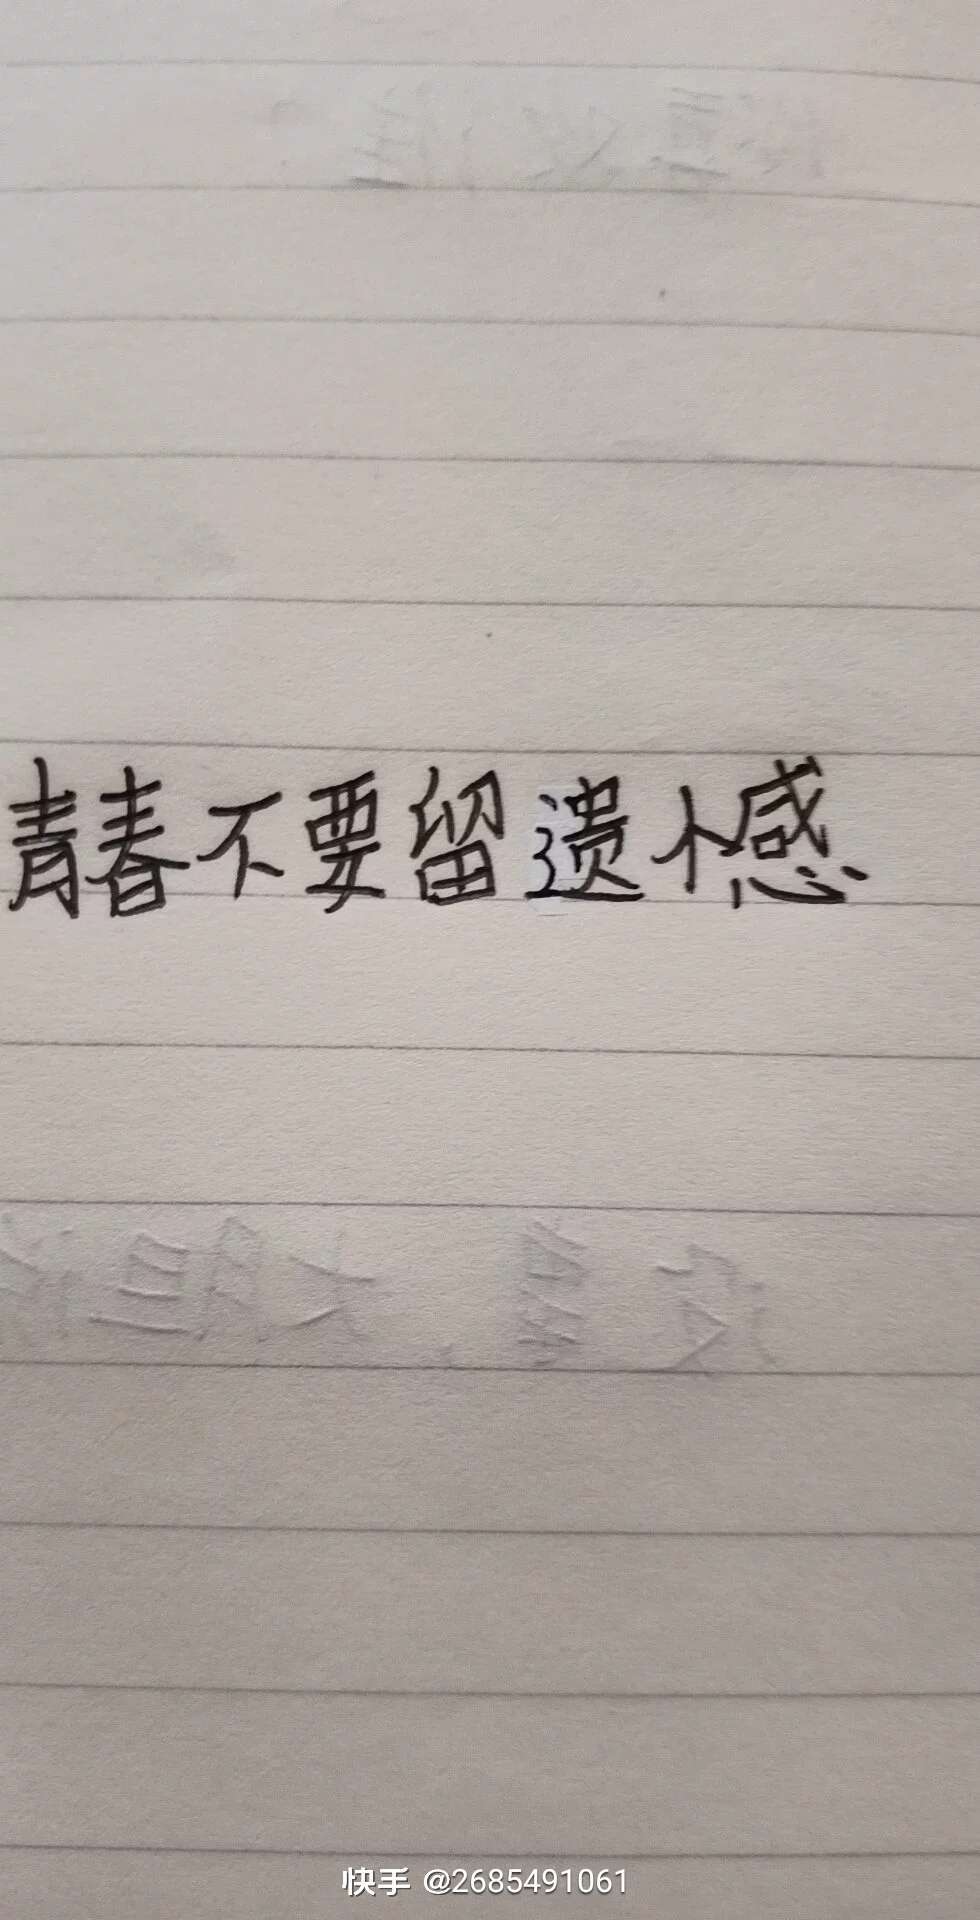 青春不要留遗憾
快手 @2685491061